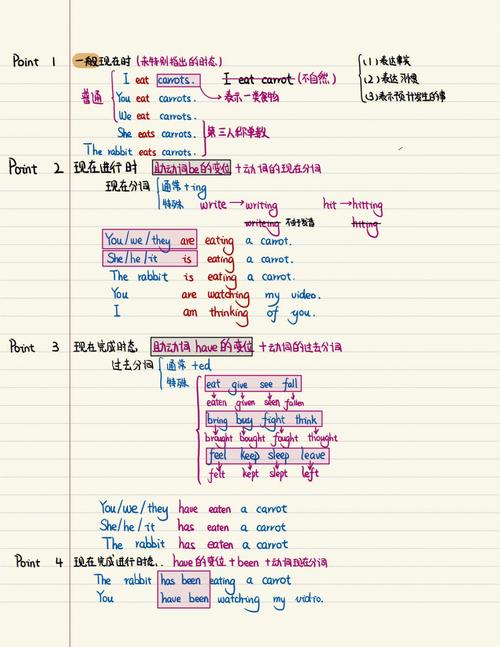 Point 1 一般现在时 (未特别指出的时态) (1) 表达事实
I eat carrots. I eat carrot (不自然) (2) 表达习惯
普通 You eat carrots. → 表示一类食物 (3) 表示预计发生的事
We eat carrots.
She eats carrots. 第三人称单数
The rabbit eats carrots.
Point 2 现在进行时 助动词be的变位 + 动词的现在分词
现在分词 通常 + ing
特殊 write → writing hit → hitting
writeing 不好发音 hiting
You/we/they are eating a carrot.
She/he/it is eating a carrot.
The rabbit is eating a carrot.
You are watching my video.
I am thinking of you.
Point 3 现在完成时态, 助动词 have 的变位 + 动词的过去分词
过去分词 通常 + ed
特殊 eat give see fall
eaten given seen fallen
bring buy fight think
brought bought fought thought
feel keep sleep leave
felt kept slept left
You/we/they have eaten a carrot
She/he/it has eaten a carrot
The rabbit has eaten a carrot
Point 4 现在完成进行时态.. have 的变位 + been + 动词现在分词
The rabbit has been eating a carrot
You have been watching my vidro.